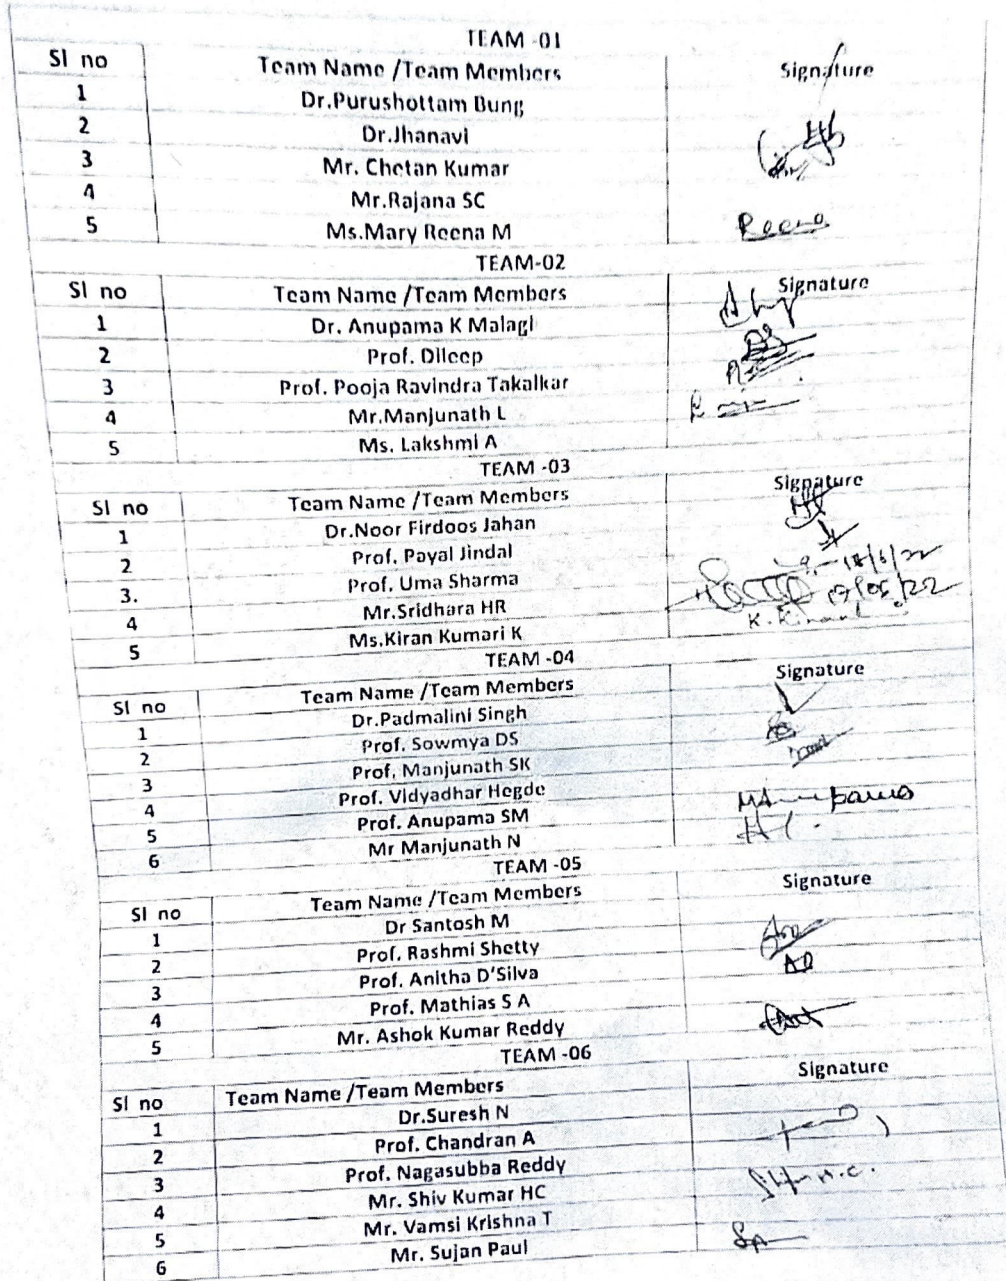 TEAM -01
Sl no Team Name /Team Members Signature
1 Dr.Purushottam Bung
2 Dr.Jhanavi
3 Mr. Chetan Kumar
4 Mr.Rajana SC
5 Ms.Mary Reena M Reena
TEAM-02
Sl no Team Name /Team Members Signature
1 Dr. Anupama K Malagi
2 Prof. Dileep
3 Prof. Pooja Ravindra Takalkar
4 Mr.Manjunath L
5 Ms. Lakshmi A
TEAM -03
Sl no Team Name /Team Members Signature
1 Dr.Noor Firdoos Jahan
2 Prof. Payal Jindal
3. Prof. Uma Sharma
4 Mr.Sridhara HR
5 Ms.Kiran Kumari K
TEAM -04
Sl no Team Name /Team Members Signature
1 Dr.Padmalini Singh
2 Prof. Sowmya DS
3 Prof. Manjunath SK
4 Prof. Vidyadhar Hegde
5 Prof. Anupama SM
6 Mr Manjunath N
TEAM -05
Sl no Team Name /Team Members Signature
1 Dr Santosh M
2 Prof. Rashmi Shetty
3 Prof. Anitha D'Silva
4 Prof. Mathias S A
5 Mr. Ashok Kumar Reddy
TEAM -06
Sl no Team Name /Team Members Signature
1 Dr.Suresh N
2 Prof. Chandran A
3 Prof. Nagasubba Reddy
4 Mr. Shiv Kumar HC
5 Mr. Vamsi Krishna T
6 Mr. Sujan Paul